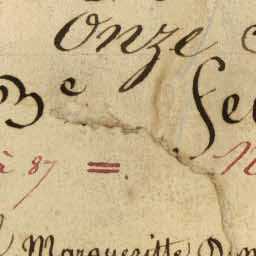 Onze
Bᵉ Fe
à 87 = N
Marguerite D